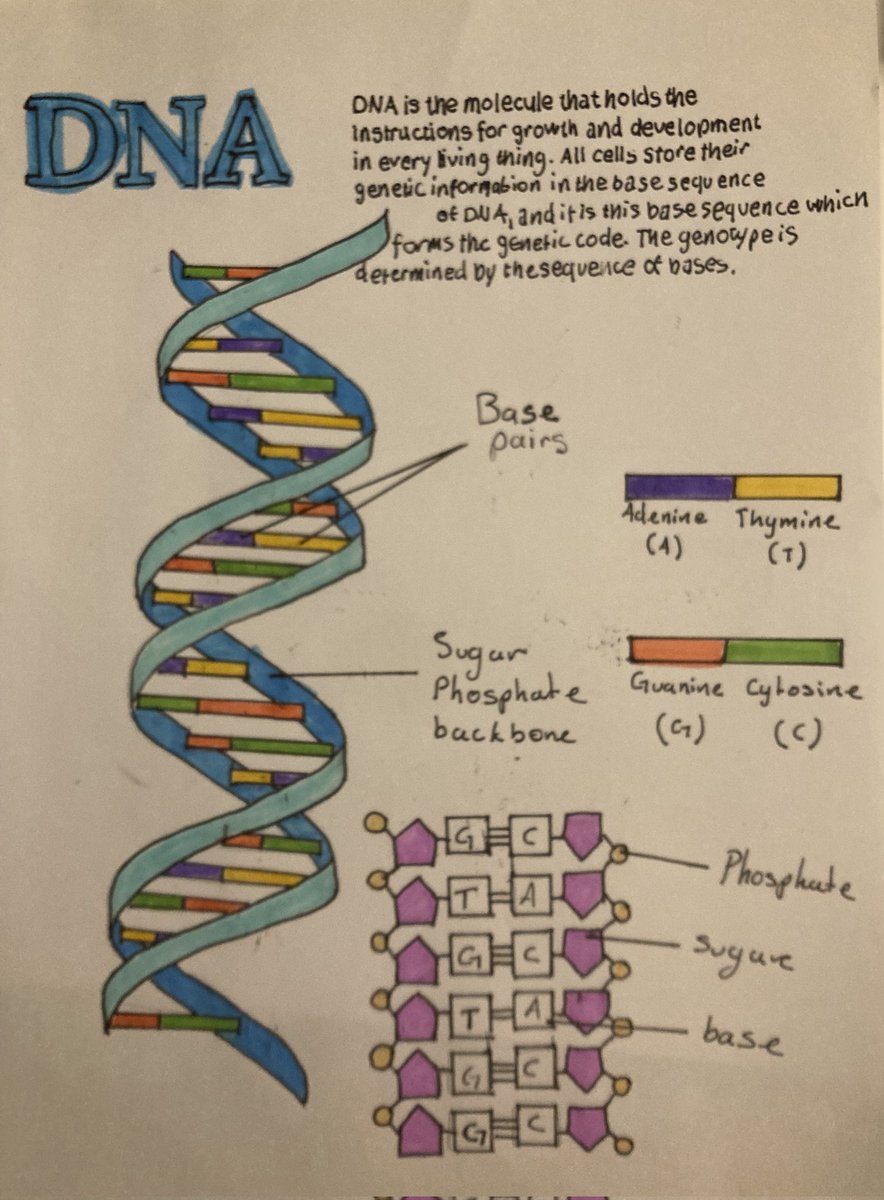 DNA
DNA is the molecule that holds the
instructions for growth and development
in every living thing. All cells store their
genetic information in the base sequence
of DNA, and it is this base sequence which
forms the genetic code. The genotype is
determined by the sequence of bases.
Base
pairs
Adenine Thymine
(A) (T)
Sugar
Phosphate
backbone
Guanine Cytosine
(G) (C)
G C
Phosphate
T A
G C
sugare
T A
base
G C
G C